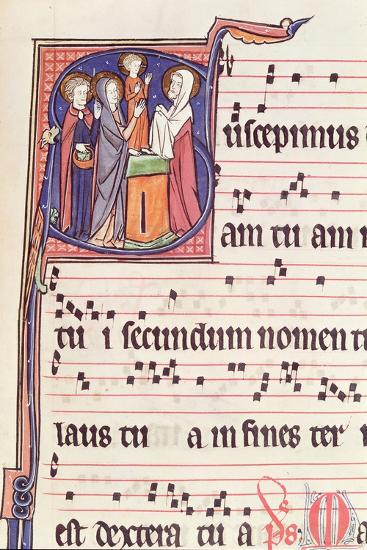 Suscepimus
am tu am
tu i secundum nomen tu
laus tu a in fines ter
est dextera tu a ps. M a